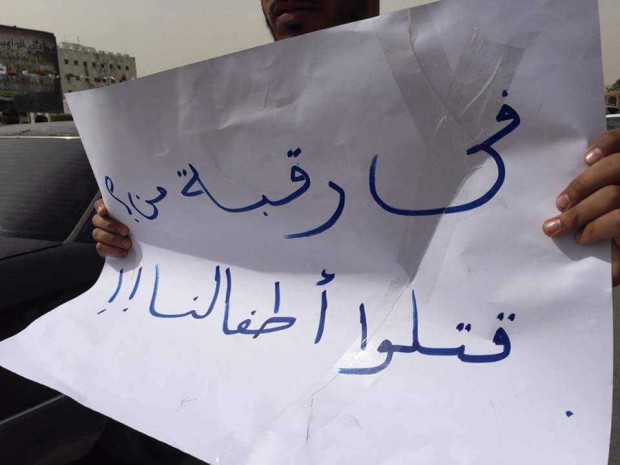 فى رقبة من؟؟
قتلوا أطفالنا!!!